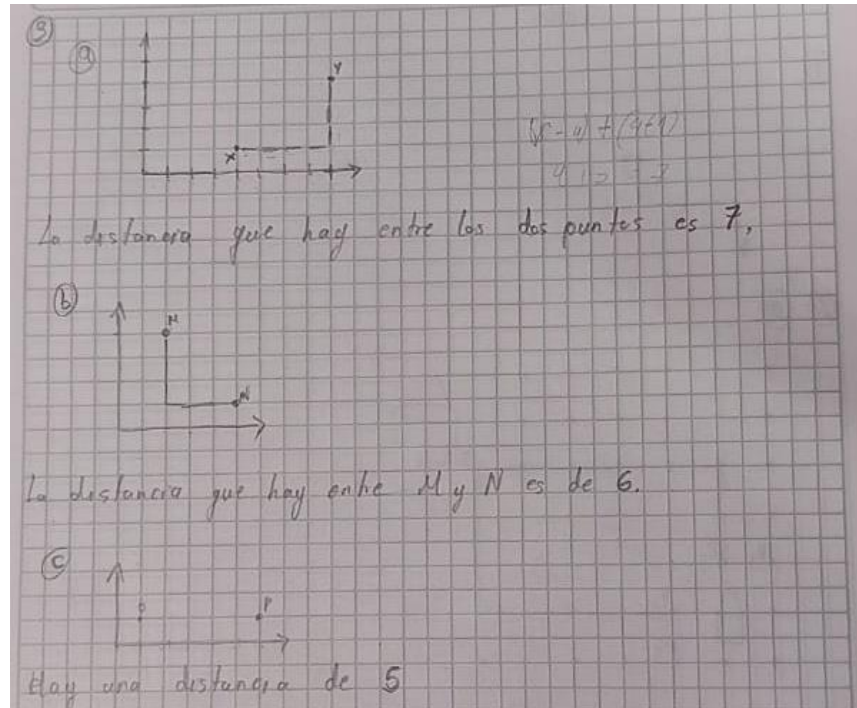 ③
ⓐ
Y
X
La distancia que hay entre los dos puntos es 7,
ⓑ
M
N
La distancia que hay entre M y N es de 6.
ⓒ
P
Hay una distancia de 5